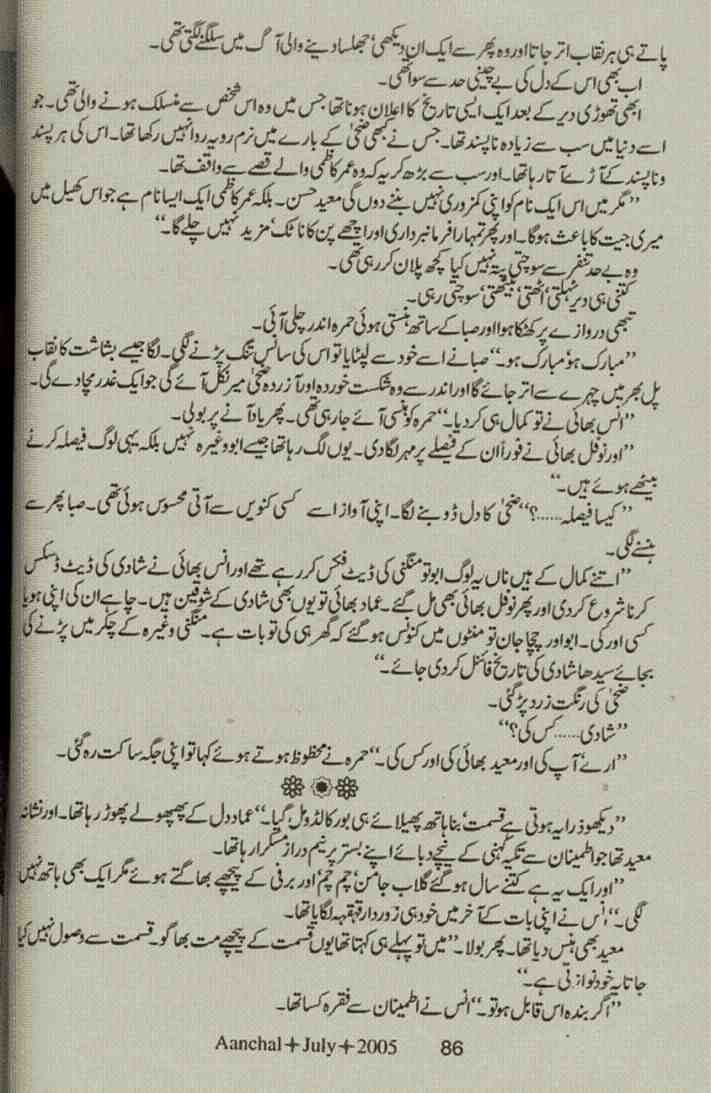 پاتے ہی ہر نقاب اتر جاتا اور وہ پھر سے ایک ان دیکھی‘ جھلسا دینے والی آگ میں سلگنے لگتی تھی۔
اب بھی اس کے دل کی بے چینی حد سے سوا تھی۔
ابھی تھوڑی دیر کے بعد ایک ایسی تاریخ کا اعلان ہونا تھا جس میں وہ اس شخص سے منسلک ہونے والی تھی۔ جو
اسے دنیا میں سب سے زیادہ ناپسند تھا۔ جس نے کبھی ضحیٰ کے بارے میں نرم رویہ روا نہیں رکھا تھا۔ اس کی ہر پسند
و ناپسند کے آڑے آتا رہا تھا۔ اور سب سے بڑھ کر یہ کہ وہ عمر کاظمی والے قصے سے واقف تھا۔
”مگر میں اس ایک نام کو اپنی کمزوری نہیں بننے دوں گی معید حسن۔ بلکہ عمر کاظمی ایک ایسا نام ہے جو اس کھیل میں
میری جیت کا باعث ہوگا۔ اور پھر تمہارا فرمانبرداری اور اچھے پن کا ناٹک‘ مزید نہیں چلے گا۔“
وہ بے حد تنفر سے سوچتی پتہ نہیں کیا کچھ پلان کر رہی تھی۔
کتنی ہی دیر ٹہلتی‘ اٹھتی‘ بیٹھتی‘ سوچتی رہی۔
تبھی دروازے پر کھٹکا ہوا اور صبا کے ساتھ ہنستی ہوئی حمرہ اندر چلی آئی۔
”مبارک ہو‘ مبارک ہو۔“ صبا نے اسے خود سے لپٹایا تو اس کی سانس تنگ پڑنے لگی۔ لگا جیسے بشاشت کا نقاب
پل بھر میں چہرے سے اتر جائے گا اور اندر سے وہ شکست خوردہ اور آزردہ ضحیٰ میر نکل آئے گی جو ایک غدر مچا دے گی۔
”انس بھائی نے تو کمال ہی کر دیا۔“ حمرہ کو ہنسی آئے جا رہی تھی۔ پھر یاد آنے پر بولی۔
”اور نوفل بھائی نے فوراً ان کے فیصلے پر مہر لگا دی۔ یوں لگ رہا تھا جیسے ابو وغیرہ نہیں بلکہ یہی لوگ فیصلہ کرنے
بیٹھے ہوئے ہیں۔“
”کیسا فیصلہ......؟“ ضحیٰ کا دل ڈوبنے لگا۔ اپنی آواز اسے کسی کنویں سے آتی محسوس ہوئی تھی۔ صبا پھر سے
ہنسنے لگی۔
”اتنے کمال کے ہیں ناں یہ لوگ ابو تو منگنی کی ڈیٹ فکس کر رہے تھے اور انس بھائی نے شادی کی ڈیٹ ڈسکس
کرنا شروع کر دی اور پھر نوفل بھائی بھی مل گئے۔ عماد بھائی تو یوں بھی شادی کے شوقین ہیں۔ چاہے ان کی اپنی ہو یا
کسی اور کی۔ ابو اور چچا جان تو منٹوں میں کنونس ہوگئے کہ گھر ہی کی تو بات ہے۔ منگنی وغیرہ کے چکر میں پڑنے کی
بجائے سیدھا شادی کی تاریخ فائنل کر دی جائے۔“
ضحیٰ کی رنگت زرد پڑ گئی۔
”شادی...... کس کی؟“
”ارے آپ کی اور معید بھائی کی اور کس کی۔“ حمرہ نے محظوظ ہوتے ہوئے کہا تو اپنی جگہ ساکت رہ گئی۔
”دیکھو ذرا یہ ہوتی ہے قسمت‘ بنا ہاتھ پھیلائے ہی بور کا لڈو مل گیا۔“ عماد دل کے پھپھولے پھوڑ رہا تھا۔ اور نشانہ
معید تھا جو اطمینان سے تکیہ کہنی کے نیچے دبائے اپنے بستر پر نیم دراز مسکرا رہا تھا۔
”اور ایک یہ ہے کتنے سال ہوگئے گلاب جامن‘ چم چم‘ اور برفی کے پیچھے بھاگتے ہوئے مگر ایک بھی ہاتھ نہیں
لگی۔“ انس نے اپنی بات کے آخر میں خود ہی زوردار قہقہہ لگایا تھا۔
معید بھی ہنس دیا تھا۔ پھر بولا۔ ”میں تو پہلے ہی کہتا تھا یوں قسمت کے پیچھے مت بھاگو۔ قسمت سے وصول نہیں کیا
جاتا یہ خود نوازتی ہے۔“
”اگر بندہ اس قابل ہو تو۔“ انس نے اطمینان سے فقرہ کسا تھا۔
Aanchal+July+2005 86